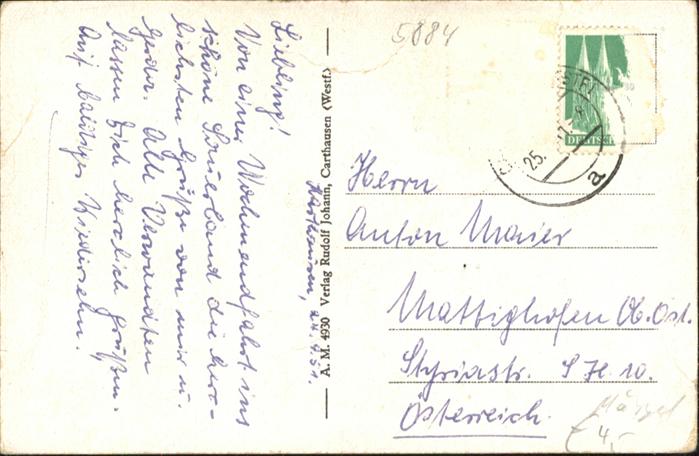 5884
Liebling!
Von einer Wochenendfahrt ins
schöne Sauerland die herz-
lichsten Grüße von mir u.
Gerda. Alle Verwandten
lassen Dich herzlich grüßen.
Auf baldiges Wiedersehn.
Karthausen, 24.9.51.
A. M. 4930 Verlag Rudolf Johann, Carthausen (Westf.)
DEUTSCHE
25.
a
Herrn
Anton Maier
Mattighofen Ob. Öst.
Styriastr. 10.
Österreich.
4,-